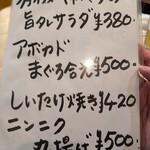 旨タレサラダ ¥380.
アボカド
まぐろ合え ¥500.
しいたけ焼き ¥420
ニンニク
丸揚げ ¥500.